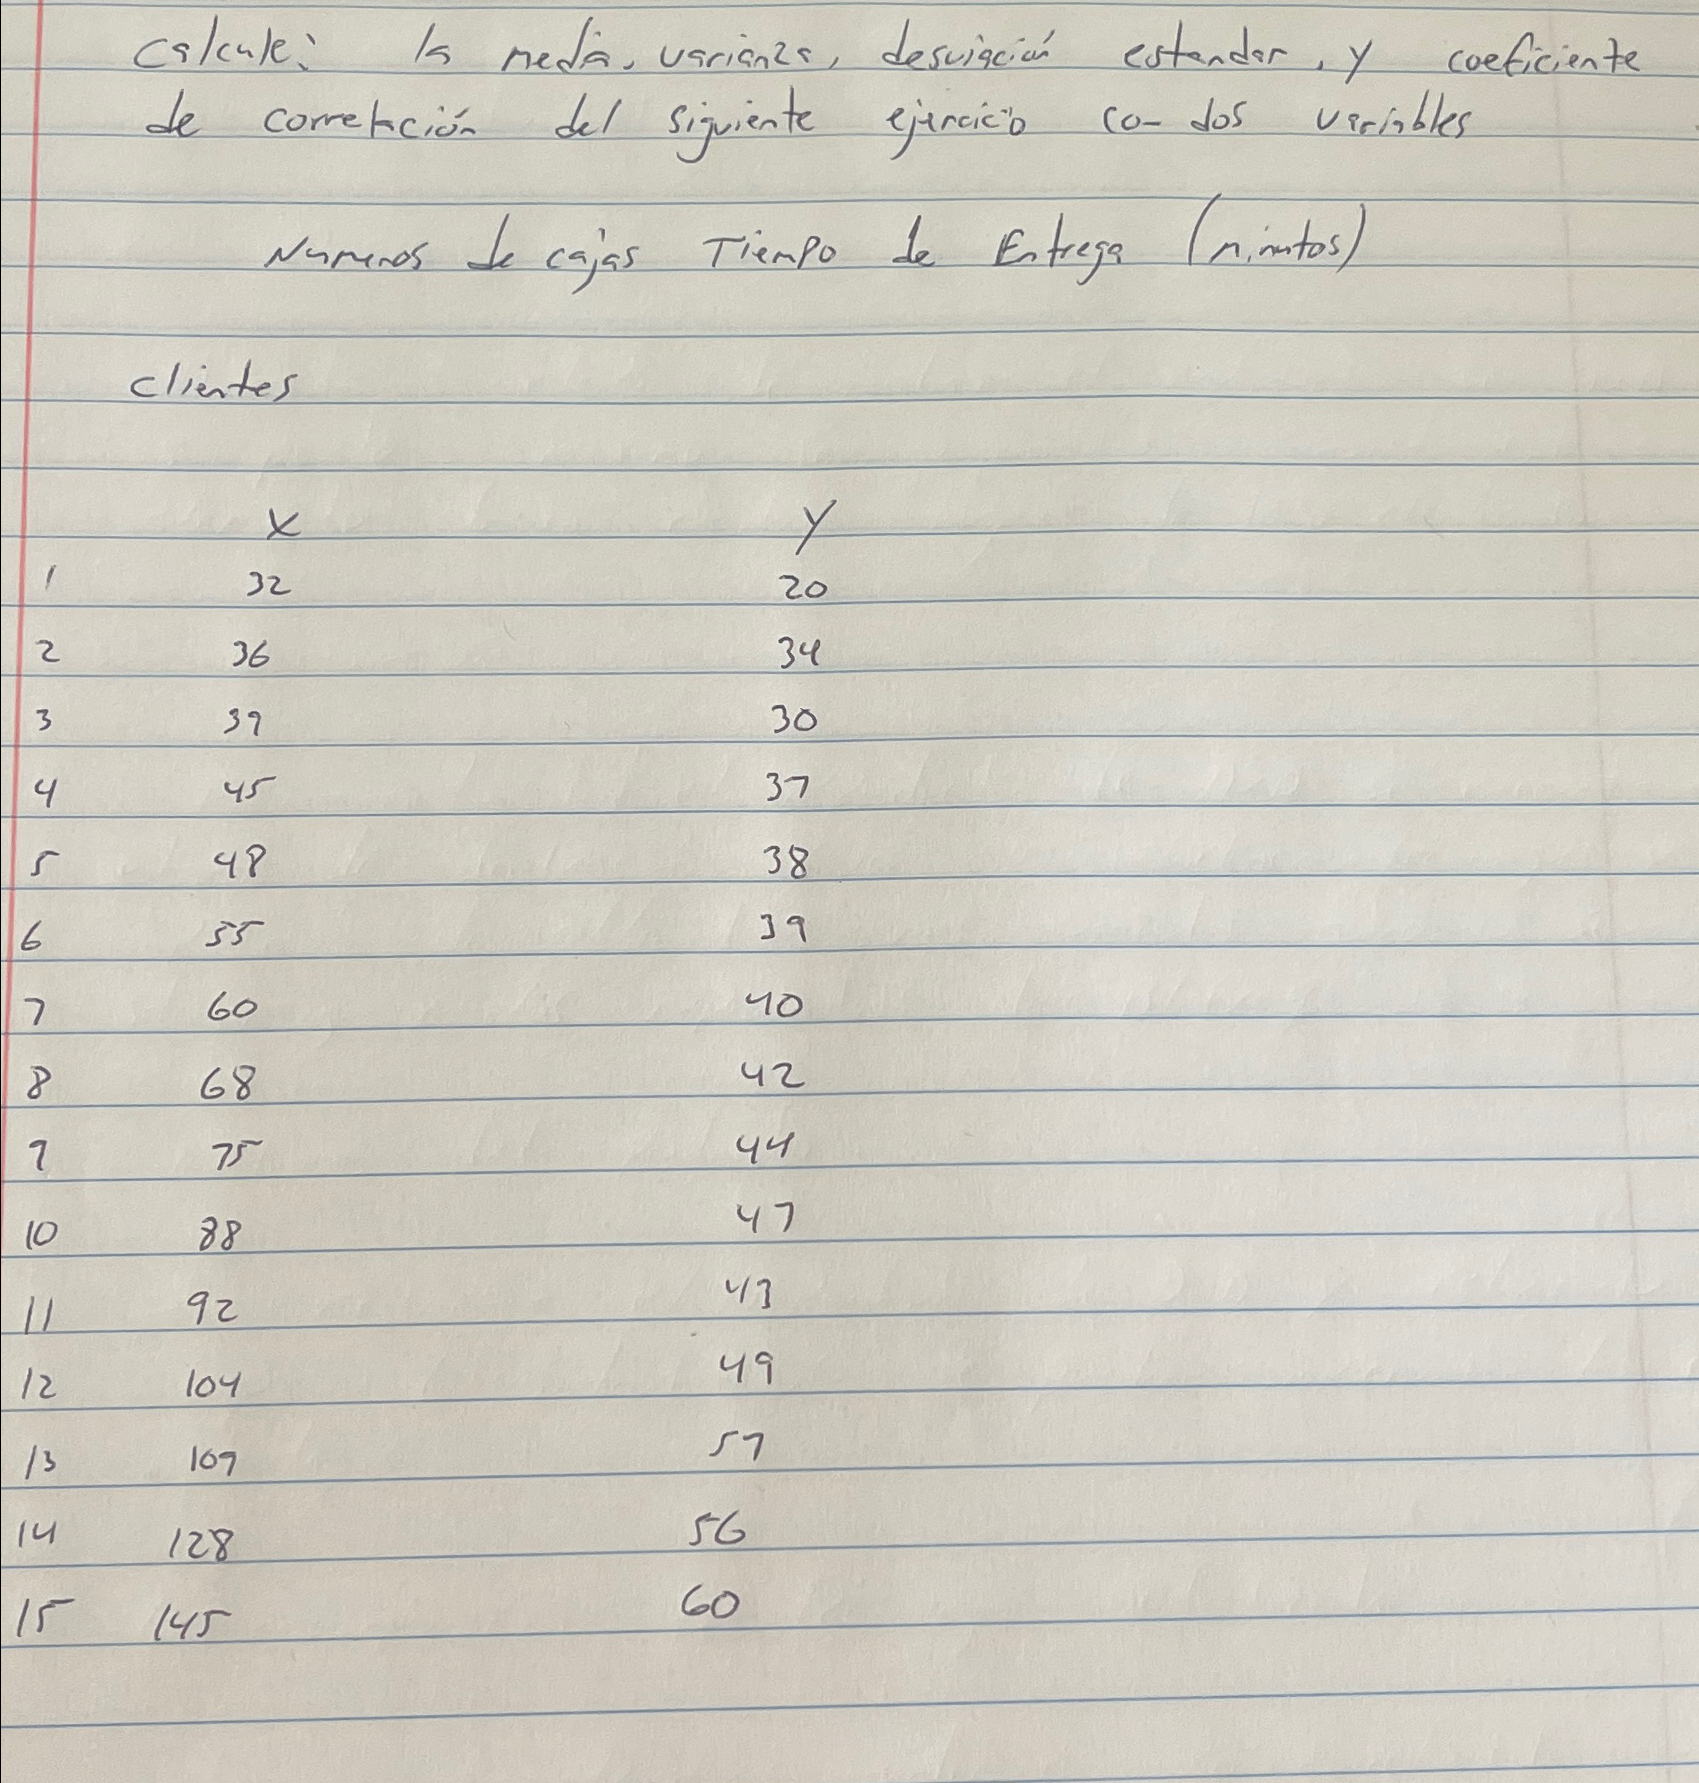 Calcule: la media, varianza, desviación estandar, y coeficiente
de correlación del siguiente ejercicio con dos variables
Numeros de cajas Tiempo de Entrega (minutos)
clientes
x y
1 32 20
2 36 34
3 39 30
4 45 37
5 48 38
6 55 39
7 60 40
8 68 42
9 75 44
10 88 47
11 92 43
12 104 49
13 109 57
14 128 56
15 145 60